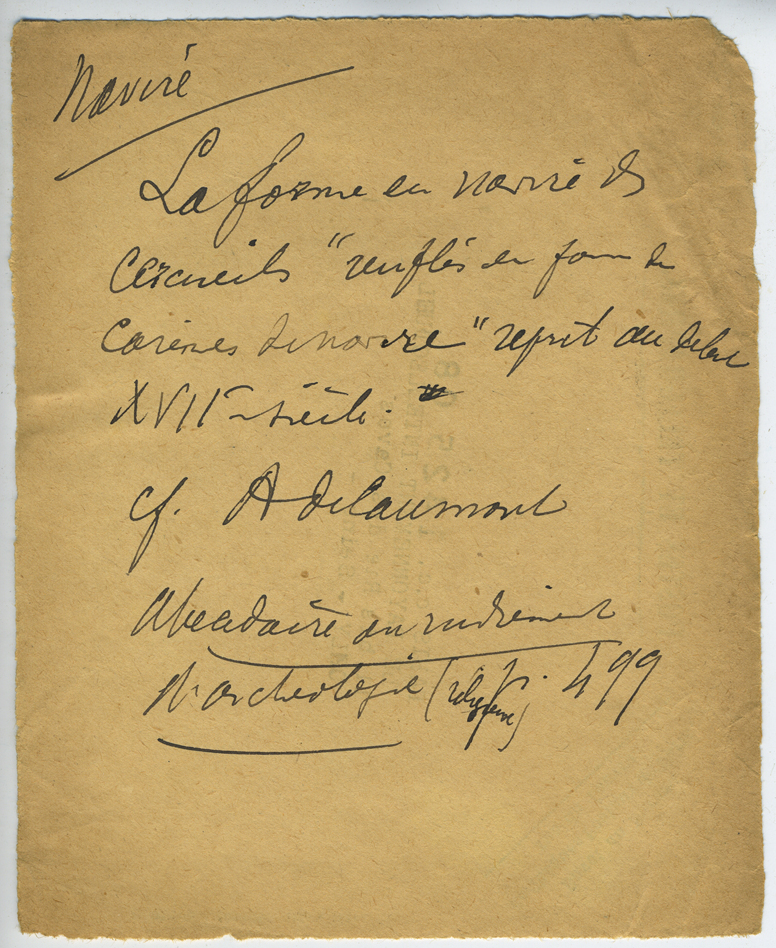 Navire
La forme en navire des
cercueils "renflés en forme de
carènes de navire" reprit au début
XVIIe siècle.
cf. A de Caumont
Abécédaire ou rudiment
d'archéologie (religieuse) p. 499